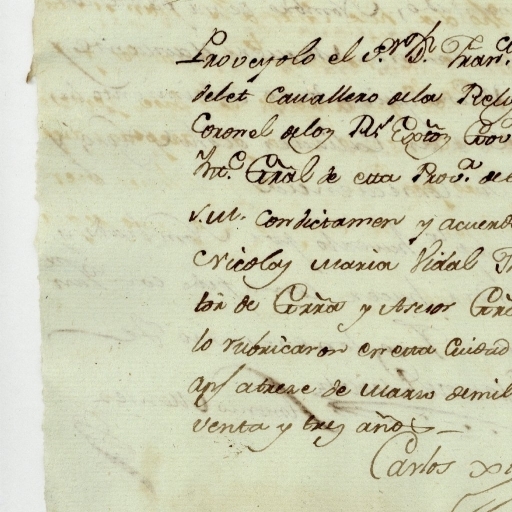 Proveyolo el S.ʳ D. Fran.ᶜᵒ
delet Cavallero dela
Coronel delos R.ˢ Exᵗᵒˢ Gov
Int.ᵉ Gr̃al de esta Prov.ᵃ de
S.M. con dictamen y acuerd
Nicolas Maria Vidal
tor de Guerra y Asesor Gr̃a
lo rubricaron en esta Ciudad
à trese de Marzo demil
venta y tres años
Carlos